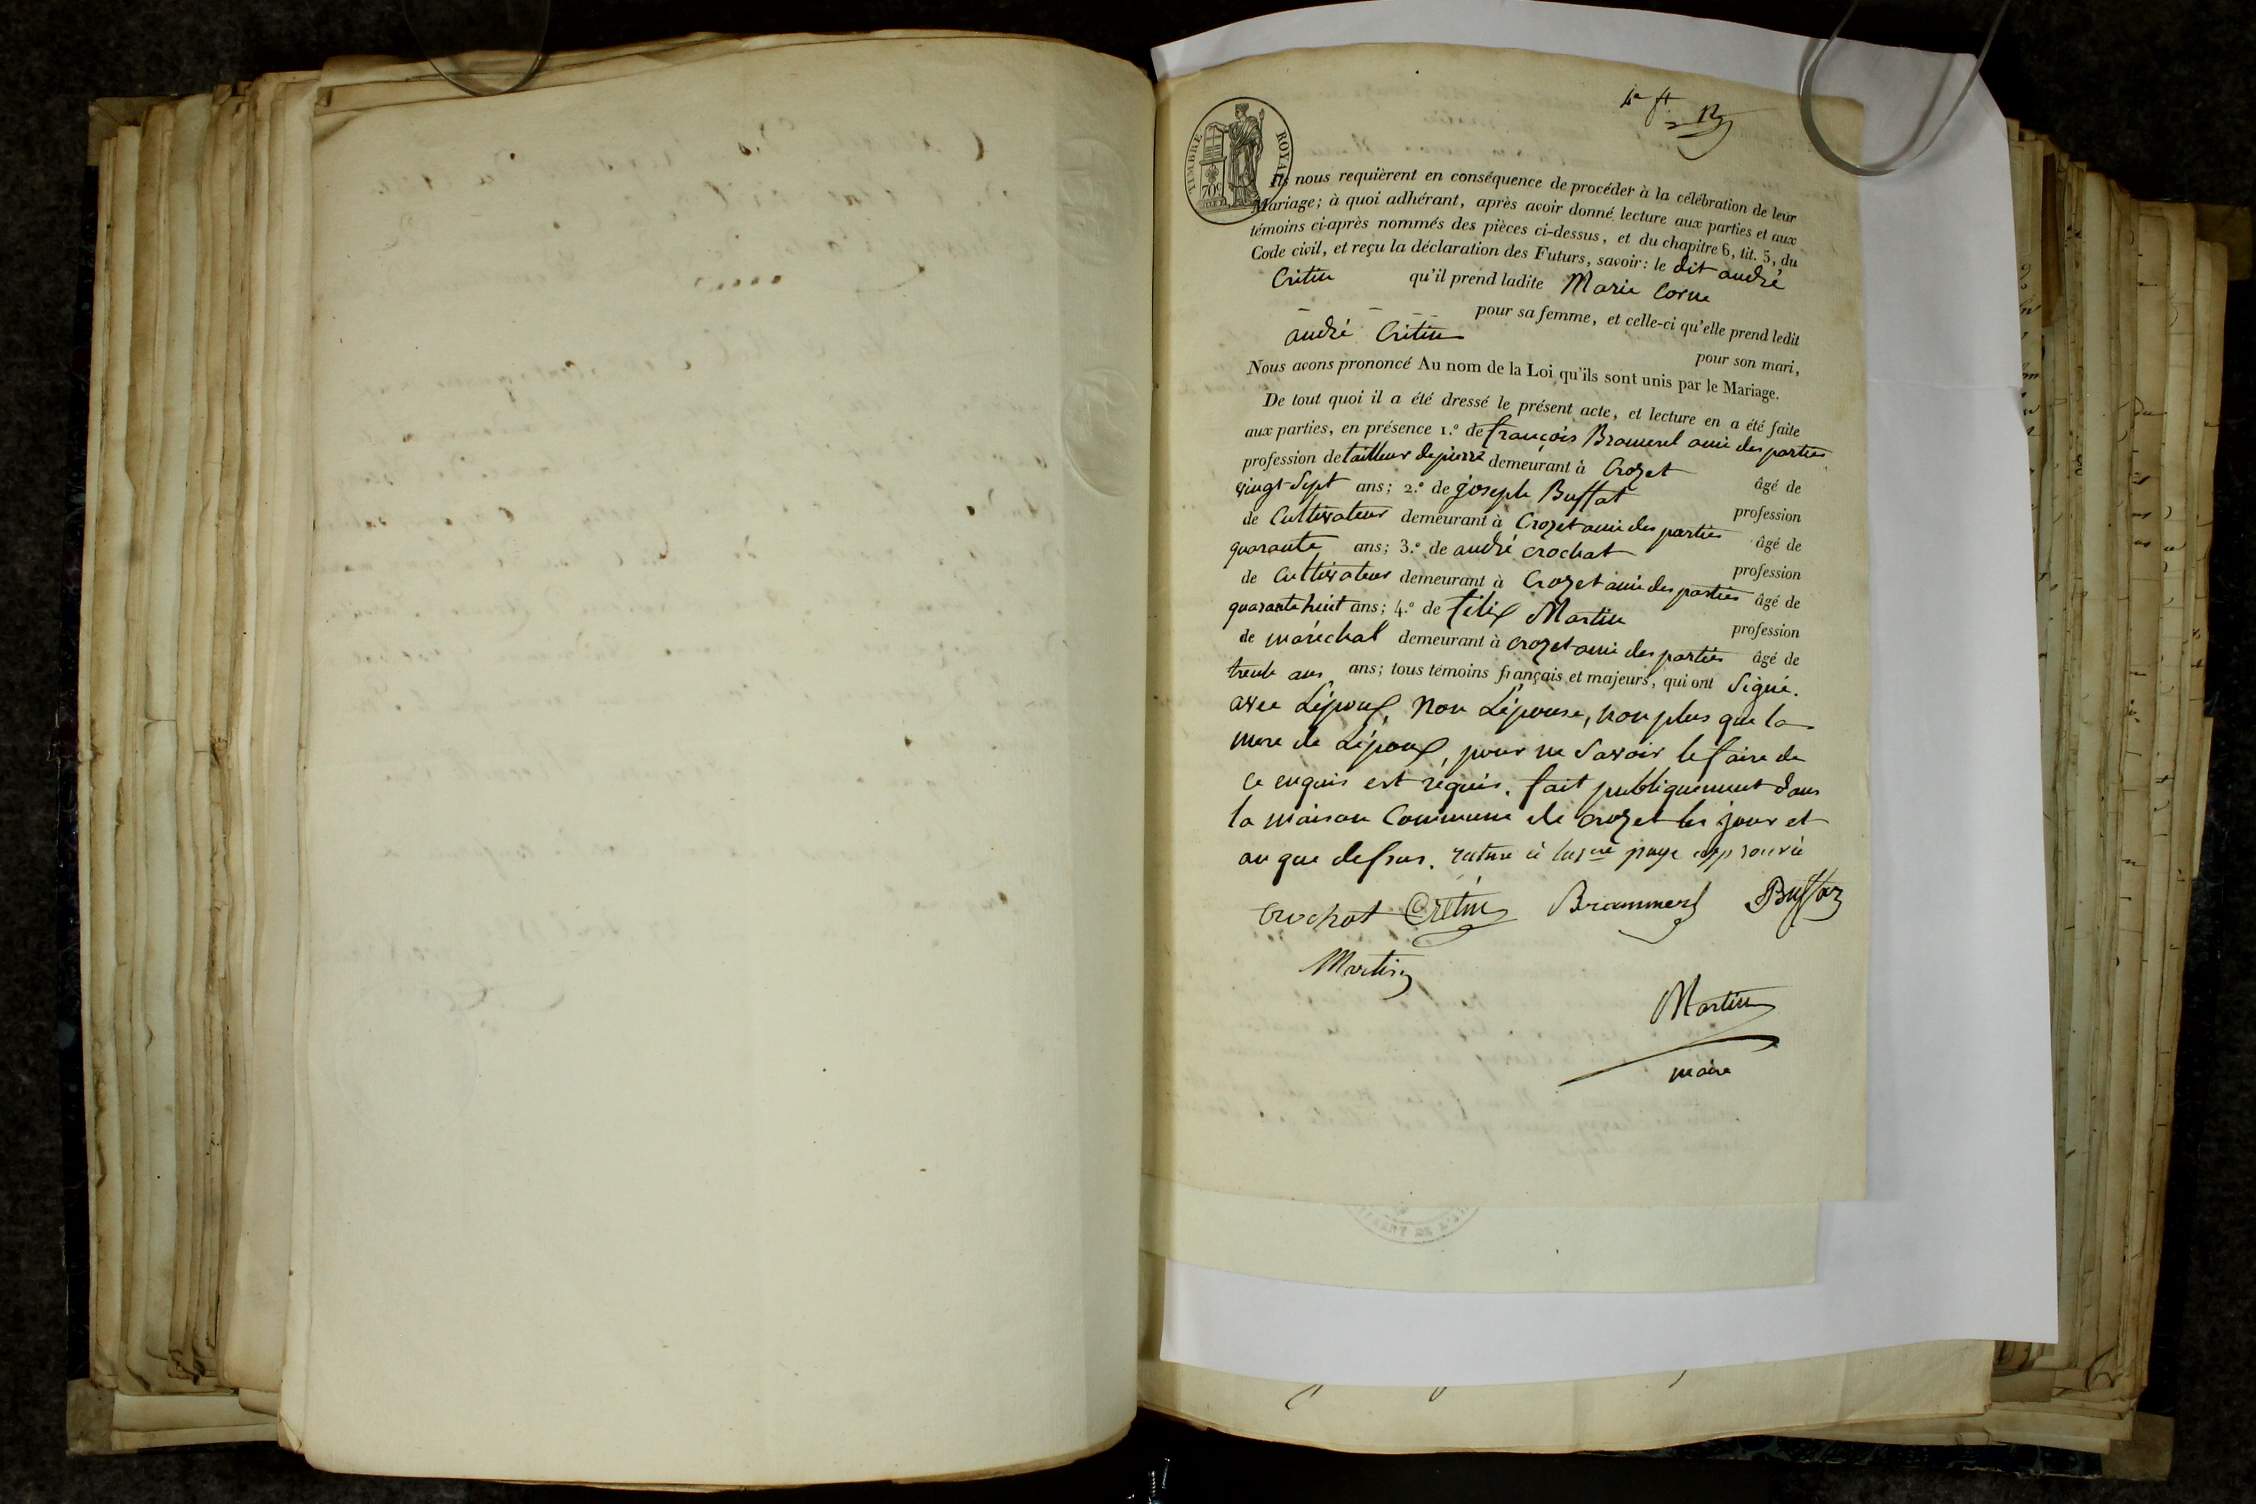 TIMBRE ROYAL
70c
Ils nous requièrent en conséquence de procéder à la célébration de leur
Mariage; à quoi adhérant, après avoir donné lecture aux parties et aux
témoins ci-après nommés des pièces ci-dessus, et du chapitre 6, tit. 5, du
Code civil, et reçu la déclaration des Futurs, savoir: le dit andré
Critin qu'il prend ladite Marie Corne
pour sa femme, et celle-ci qu'elle prend ledit
andré Critin
pour son mari,
Nous avons prononcé Au nom de la Loi qu'ils sont unis par le Mariage.
De tout quoi il a été dressé le présent acte, et lecture en a été faite
aux parties, en présence 1.º de françois Bramerel ami des parties
profession de tailleur de pierre demeurant à Crozet
âgé de
vingt-Sept ans; 2.º de joseph Buffat
profession
de Cultivateur demeurant à Crozet ami des parties âgé de
quarante ans; 3.º de andré crochat
profession
de Cultivateur demeurant à Crozet ami des parties âgé de
quarante huit ans; 4.º de félix Martin
profession
de maréchal demeurant à crozet ami des parties âgé de
trente ans ans; tous témoins français et majeurs, qui ont Signé.
avec L'époux, Non L'épouse, non plus que la
mere de L'époux, pour ne Savoir le faire de
ce enquis est requis. fait publiquement dans
la maison Commune de crozet les jour et
an que dessus. rature à la page approuvée
Crochat Cretin Brammerel Buffaz
Martin
Martin
maire